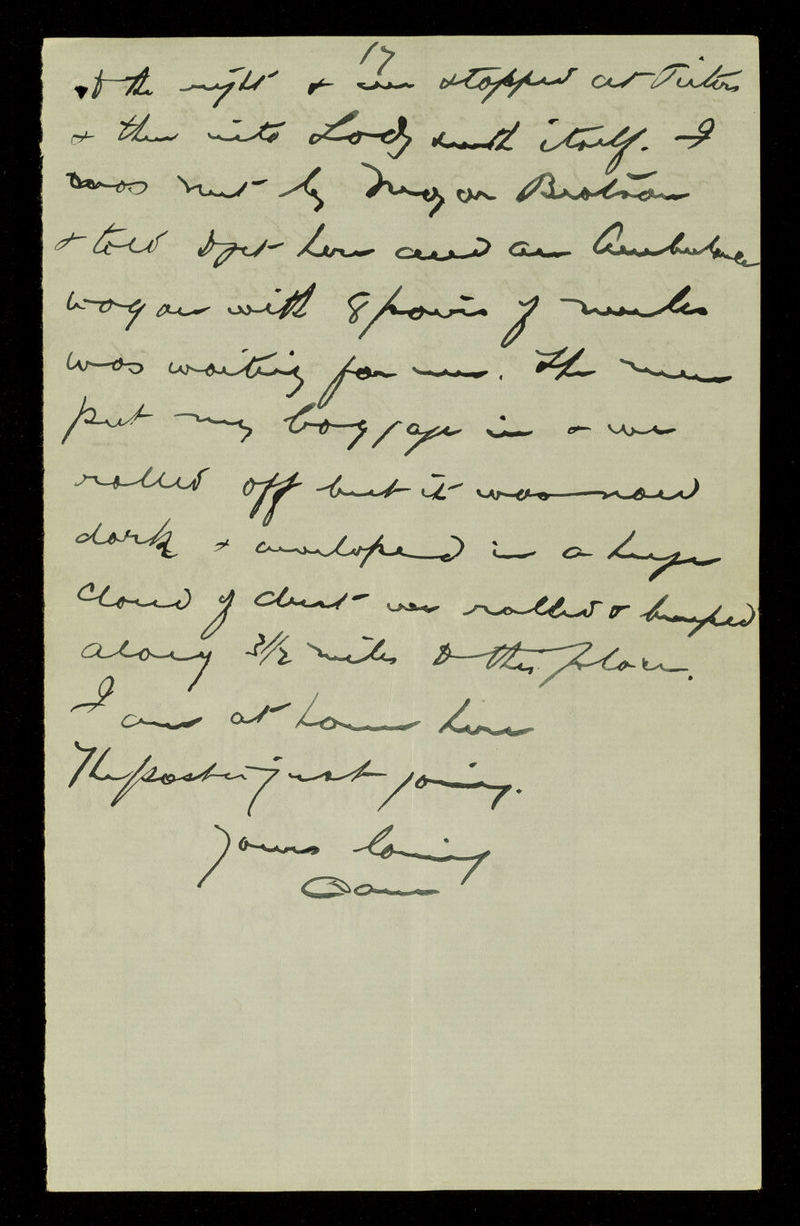 17
to the right & we stopped at Pieters
& then into Ladysmith itself. I
was met by Major
& told to get here and an Ambulance
wagon with 8 pairs of mules
was waiting for me. The men
put my baggage in & we
rolled off but it was now
dark & enveloped in a huge
cloud of dust we rolled & bumped
along 3½ miles to this place.
I am at home here
The post is just going.
Yours loving